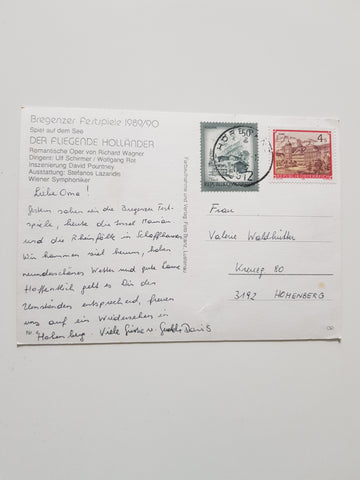 Bregenzer Festspiele 1989/90
Spiel auf dem See
DER FLIEGENDE HOLLÄNDER
Romantische Oper von Richard Wagner
Dirigent: Ulf Schirmer / Wolfgang Rot
Inszenierung David Pountney
Ausstattung: Stefanos Lazaridis
Wiener Symphoniker
Liebe Oma!
Gestern sahen wir die Bregenzer Fest-
spiele, heute die Insel Mainau
und die Rheinfälle in Schaffhausen.
Wir kommen viel herum, haben
wunderschönes Wetter und gute Laune
Hoffentlich geht es Dir den
Umständen entsprechend, freuen
uns auf ein Wiedersehen in
Hohenberg. Viele Grüße v.
Farbaufnahme und Verlag Foto Branz, Lustenau
50
REPUBLIK
4 S
REPUBLIK ÖSTERREICH
Frau
Valerie Waldhütter
Kreuzg 80
3192 HOHENBERG